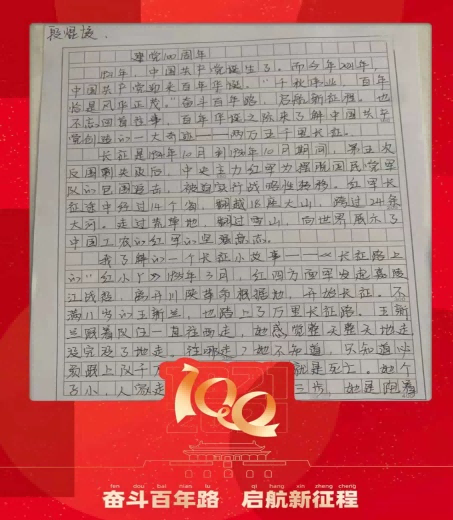 建党100周年
1921年，中国共产党诞生了。而今年2021年，
中国共产党迎来百年华诞。"千秋伟业，百年
恰是风华正茂。"奋斗百年路，启航新征程。也
不忘回首往事，百年华诞之际来了解中国共产
党创造的一大奇迹——两万五千里长征。
长征是1934年10月到1936年10月期间，第五次
反围剿失败后，中央主力红军为摆脱国民党军
队的包围追击，被迫实行战略性转移。红军长
征途中经过14个省，翻越18座大山，跨过24条
大河。走过荒草地，翻过雪山，向世界展示了
中国工农的红军的坚强意志。
我了解的一个长征小故事——《长征路上
的"红小丫"》1935年3月，红四方面军发起嘉陵
江战役，离开川陕革命根据地，开始长征。不
满11岁的王新兰，也踏上了万里长征路。王新
兰跟着队伍一直往西走，她感觉整天整天地走，
没完没了地走，往哪走？她不知道，只知道必
须跟上队 就是死亡。她个
子小，人家走 三步，她是跑着
100
fen dou bai nian lu qi hang xin zheng cheng
奋斗百年路 启航新征程